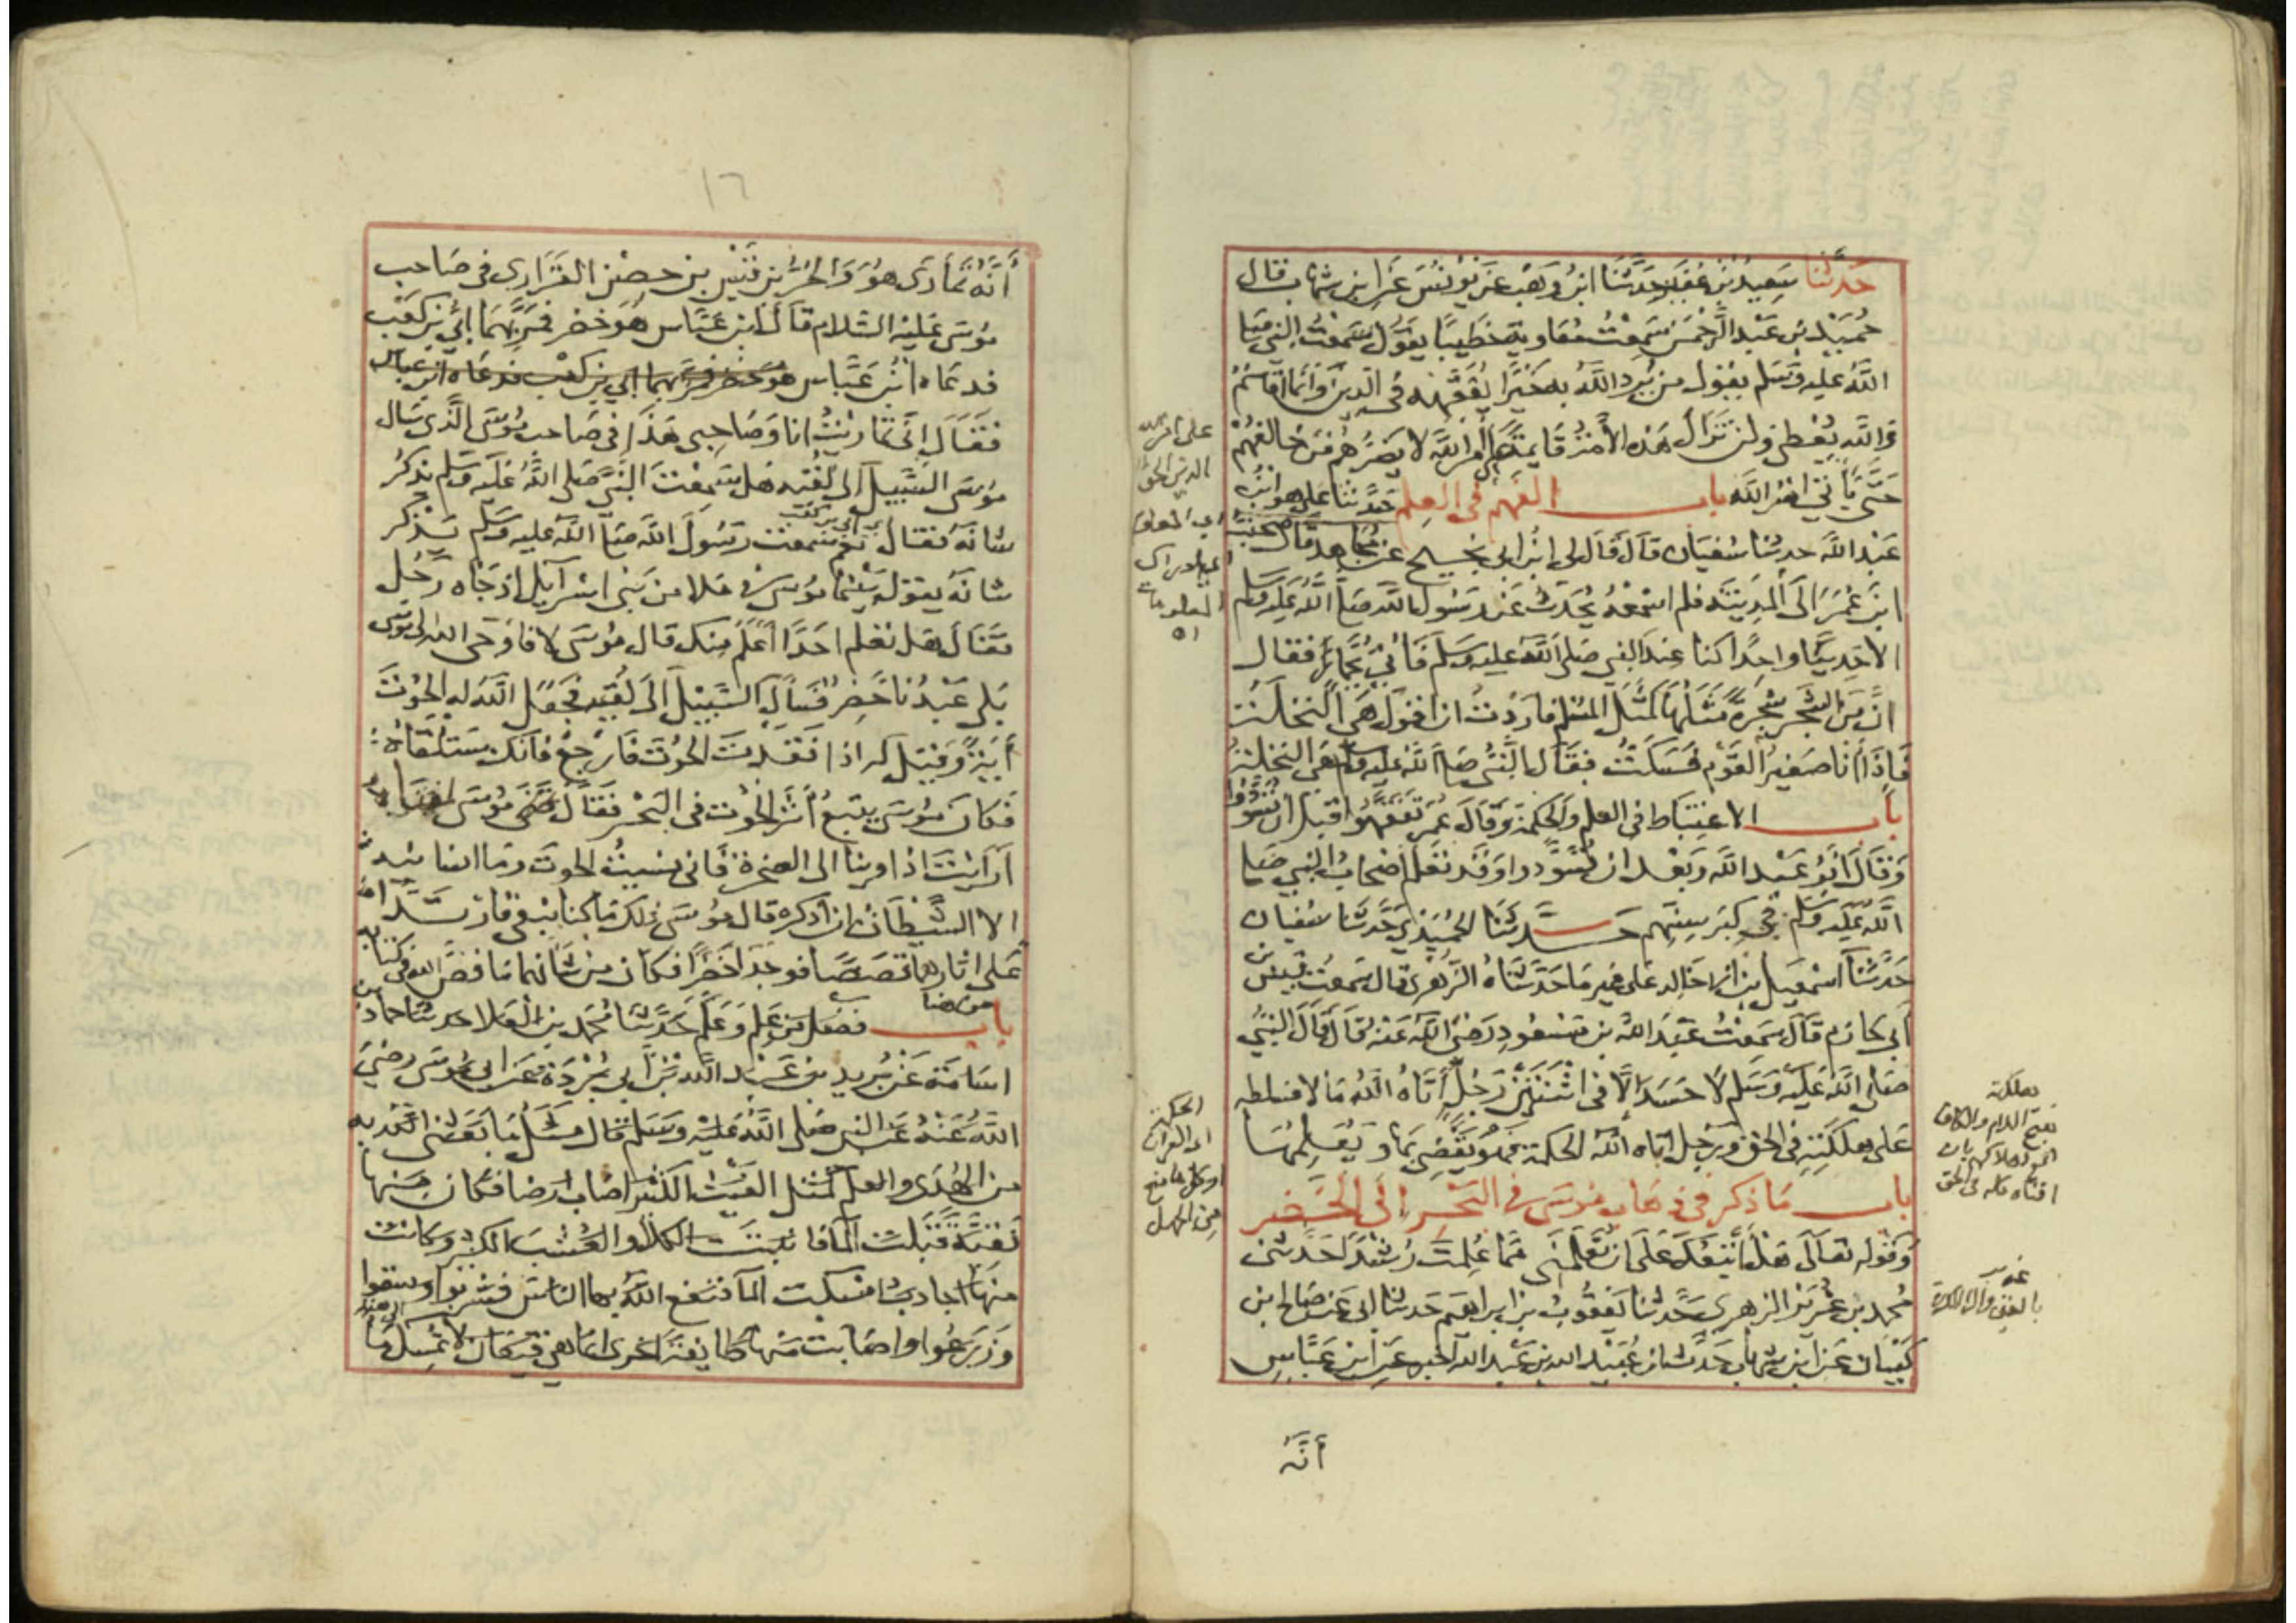 حَدَّثَنَا سَعِيدُ بْنُ عُفَيْرٍ حَدَّثَنَا ابْنُ وَهْبٍ عَنْ يُونُسَ عَنِ ابْنِ شِهَابٍ قال
حُمَيْدُ بْنُ عَبْدِ الرَّحْمَنِ سَمِعْتُ مُعَاوِيَةَ خَطِيبًا يَقُولُ سَمِعْتُ النبي صَلى
اللَّهُ عليه وَسَلم يقول من يُرِدِ اللَّهُ به خَيْرًا يُفَقِّهْهُ فى الدين وَانَّمَا انا قَاسِمٌ
وَاللَّهُ يُعْطى ولن تَزَالَ هَذه الأمَّةُ قَايمَةً عَلَى أمْرِ اللَّهِ لا يَضُرُّهُمْ مَنْ خَالَفَهُمْ
حَتَّى يَأتِيَ امْرُ اللَّهِ باب الفَهْمِ فى العِلْمِ حَدَّثنا عَلى هو ابْنُ
عَبْدِ اللَّهِ حدثنا سُفيَان قَالَ قَالَ لى ابْنُ ابى نَجيحٍ عن مُجَاهد قال صَحِبْتُ
ابْنَ عُمَرَ الَى المَدِينَةِ فلم اسْمَعْهُ يُحَدِّثُ عَنْ رَسُولِ اللَّهِ صَلى اللَّهُ عَلَيْهِ وَسَلم
الا حَدِيثًا واحِدًا كنا عِنْدَ النبي صَلى اللَّهُ عليه وَسَلم فَأُتِيَ بِجُمَّارٍ فقال
انَّ مِنَ الشَّجَرِ شَجَرَةً مَثَلُهَا كَمَثَلِ المُسْلِم فاردْتُ ان اقولَ هى النخلة
فَإِذَا أَنَا صَغِيرُ القَوْمِ فَسَكَتُّ فقَالَ النَّبيُّ صَلى اللَّهُ عليه وسلم هى النخلة
باب الاغتِبَاط فى العلم والحكمة وَقَالَ عُمَرُ تَفَقَّهُوا قبل ان تُسَوَّدُوا
وَقَالَ ابُو عَبْدِ اللَّهِ وَبَعْد ان تُسَوَّدوا وَقَد تَعَلَّمَ اصْحَابُ النبي صَلى
اللَّهُ عَليه وَسَلم فى كِبَرِ سِنِّهِم حَدَّثَنَا الحُمَيْدِيُّ حَدَّثنَا سُفيان
حَدَّثَنَا اسْمَعِيلُ بن ابى خَالِد عَلى غير مَا حَدَّثَنَاهُ الزّهْرِى قال سَمعْتُ قَيسَ بن
أَبى حَازِم قَالَ سَمِعْتُ عَبْدَ اللَّهِ بن مَسْعُودٍ رَضيَ اللَّهُ عَنْهُ قَالَ قَالَ النبيُّ
صَلى اللَّهُ عَلَيْهِ وَسَلم لاَ حَسَدَ الاَّ فى اثْنَتَيْنِ رَجُلٌ أَتَاهُ اللَّهُ مَالا فسلطه
عَلى هلكَتِهِ فى الحَق وَرَجُل اتاه اللَّهُ الحكمة فهُوَ يَقْضِى بهَا وَيُعَلِّمُهَا
باب مَا ذكر فى ذهَاب مُوسَى فى البَحْرِ الى الخَضِر
وَقَولِه تعَالَى هَلْ أَتَّبِعُكَ عَلَى ان تُعَلِّمَنى ممَّا عُلِّمْتَ رُشْدًا حَدَّثنى
مُحمد بن غُرَيْر الزهرى حَدَّثنا يَعْقُوبُ بن ابراهيم حَدثنا ابى عَنْ صَالح ابن
كَيْسَان عَن ابن شهَاب حَدَّثَ ان عُبَيْدَ الله بن عَبْد الله اخبره عَنِ ابن عَبَّاسٍ
أنَّهُ
على امر الله
الدين الحق
اى المعلومات
هلكته
بفتح اللام والكاف
الحكمة
اى القرآن
او كل ما منع
من الجهل
١٦
أَنَّهُ تَمَارَى هُوَ وَالحُرُّ بن قَيْسِ بن حِصْن الفَزَارِى فى صَاحب
مُوسَى عَلَيْهِ السَّلام قَالَ ابن عَبَّاس هُوَ خضِر فمَرَّ بِهِمَا ابَيُّ بن كَعْب
فدعَاه ابْنُ عَبَّاس هو خضر فمر بهما ابي بن كعب فدعاه ابن عباس
فَقَالَ إنِّى تمارَيْتُ انا وَصَاحِبى هَذَا فى صَاحب مُوسَى الَّذى سَال
مُوسَى السَّبِيلَ الى لُقِيّهِ هَل سَمعْتَ النَّبيَّ صَلى اللَّهُ عَلَيه وَسَلم يذكرُ
شَانَهُ فقال ابى بن كعب نعم سَمعت رَسُولَ اللَّه صَلى اللَّه عليه وسلم يَذْكر
شانَهُ يقول بَيْنَمَا مُوسَى فى مَلا من بَنى اسْرَآئيل اذ جَاه رَجُل
فَقَالَ هَل تَعْلم احَدًا أعْلَمَ مِنك قال مُوسَى لا فاوْحَى الله الى مُوسَى
بَلى عَبْدُنا خَضِر فَسَالَ السَّبِيل إلَى لُقِيِّهِ فَجَعَلَ اللَّهُ له الحُوتَ
أيَةً وَقِيْلَ له اذا فَقَدْتَ الحُوتَ فَارْجِعْ فانك سَتَلْقَاهُ
فَكانَ مُوسَى يتبَعُ أثَرَ الحُوت فى البَحْر فَقَالَ فتى مُوسَى لموسى
أَرَأَيْتَ اذ اوينا الى الصخرة فَانى نسيتُ الحوتَ ومَا انسانيه
الا الشَّيْطَانُ ان أذكره قال مُوسَى ذلك مَا كنا نبغى فَارْتَدَّا
عَلى اثارهما قَصَصًا فوجدَا خضرًا فكان من شانهما مَا قَصَّ الله فى كتابه
باب فضل من عَلِمَ وَعَلَّمَ حَدَّثَنَا مُحَمد بن العَلا حدثنا حماد بن
اسَامَة عَنْ بُرَيد بن عَبْد اللَّه عَنْ أَبى بُرْدَة عَن ابى مُوسَى رضيَ
اللَّهُ عَنْهُ عن النبي صَلى اللَّهُ عَلَيْهِ وَسَلم قال مَثَلُ مَا بَعَثَنى اللَّهُ به
من الهُدَى والعلم كمَثَل الغَيْث الكثير اصَاب ارْضا فكان منها
نَقيَّة قَبلت المَا فانبتت الكَلاَ والعُشبَ الكثير وكانت
منها اجادبُ امسكت المَا فنفع اللَّهُ بها الناس فشربوا وسقوا
وَزَرَعُوا واصَابت منها طايفَة اخرى انما هى قيعَان لا تُمسِكُ مَا